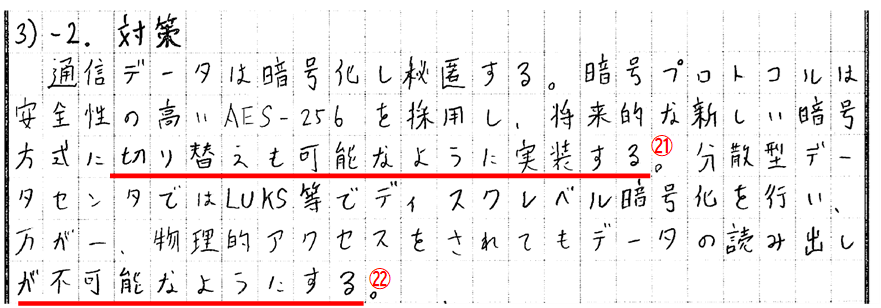 3)-2. 対策
通信データは暗号化し秘匿する。暗号プロトコルは
安全性の高いAES-256を採用し、将来的な新しい暗号
方式に切り替えも可能なように実装する。㉑分散型デー
タセンタではLUKS等でディスクレベル暗号化を行い、
万が一、物理的アクセスをされてもデータの読み出し
が不可能なようにする。㉒